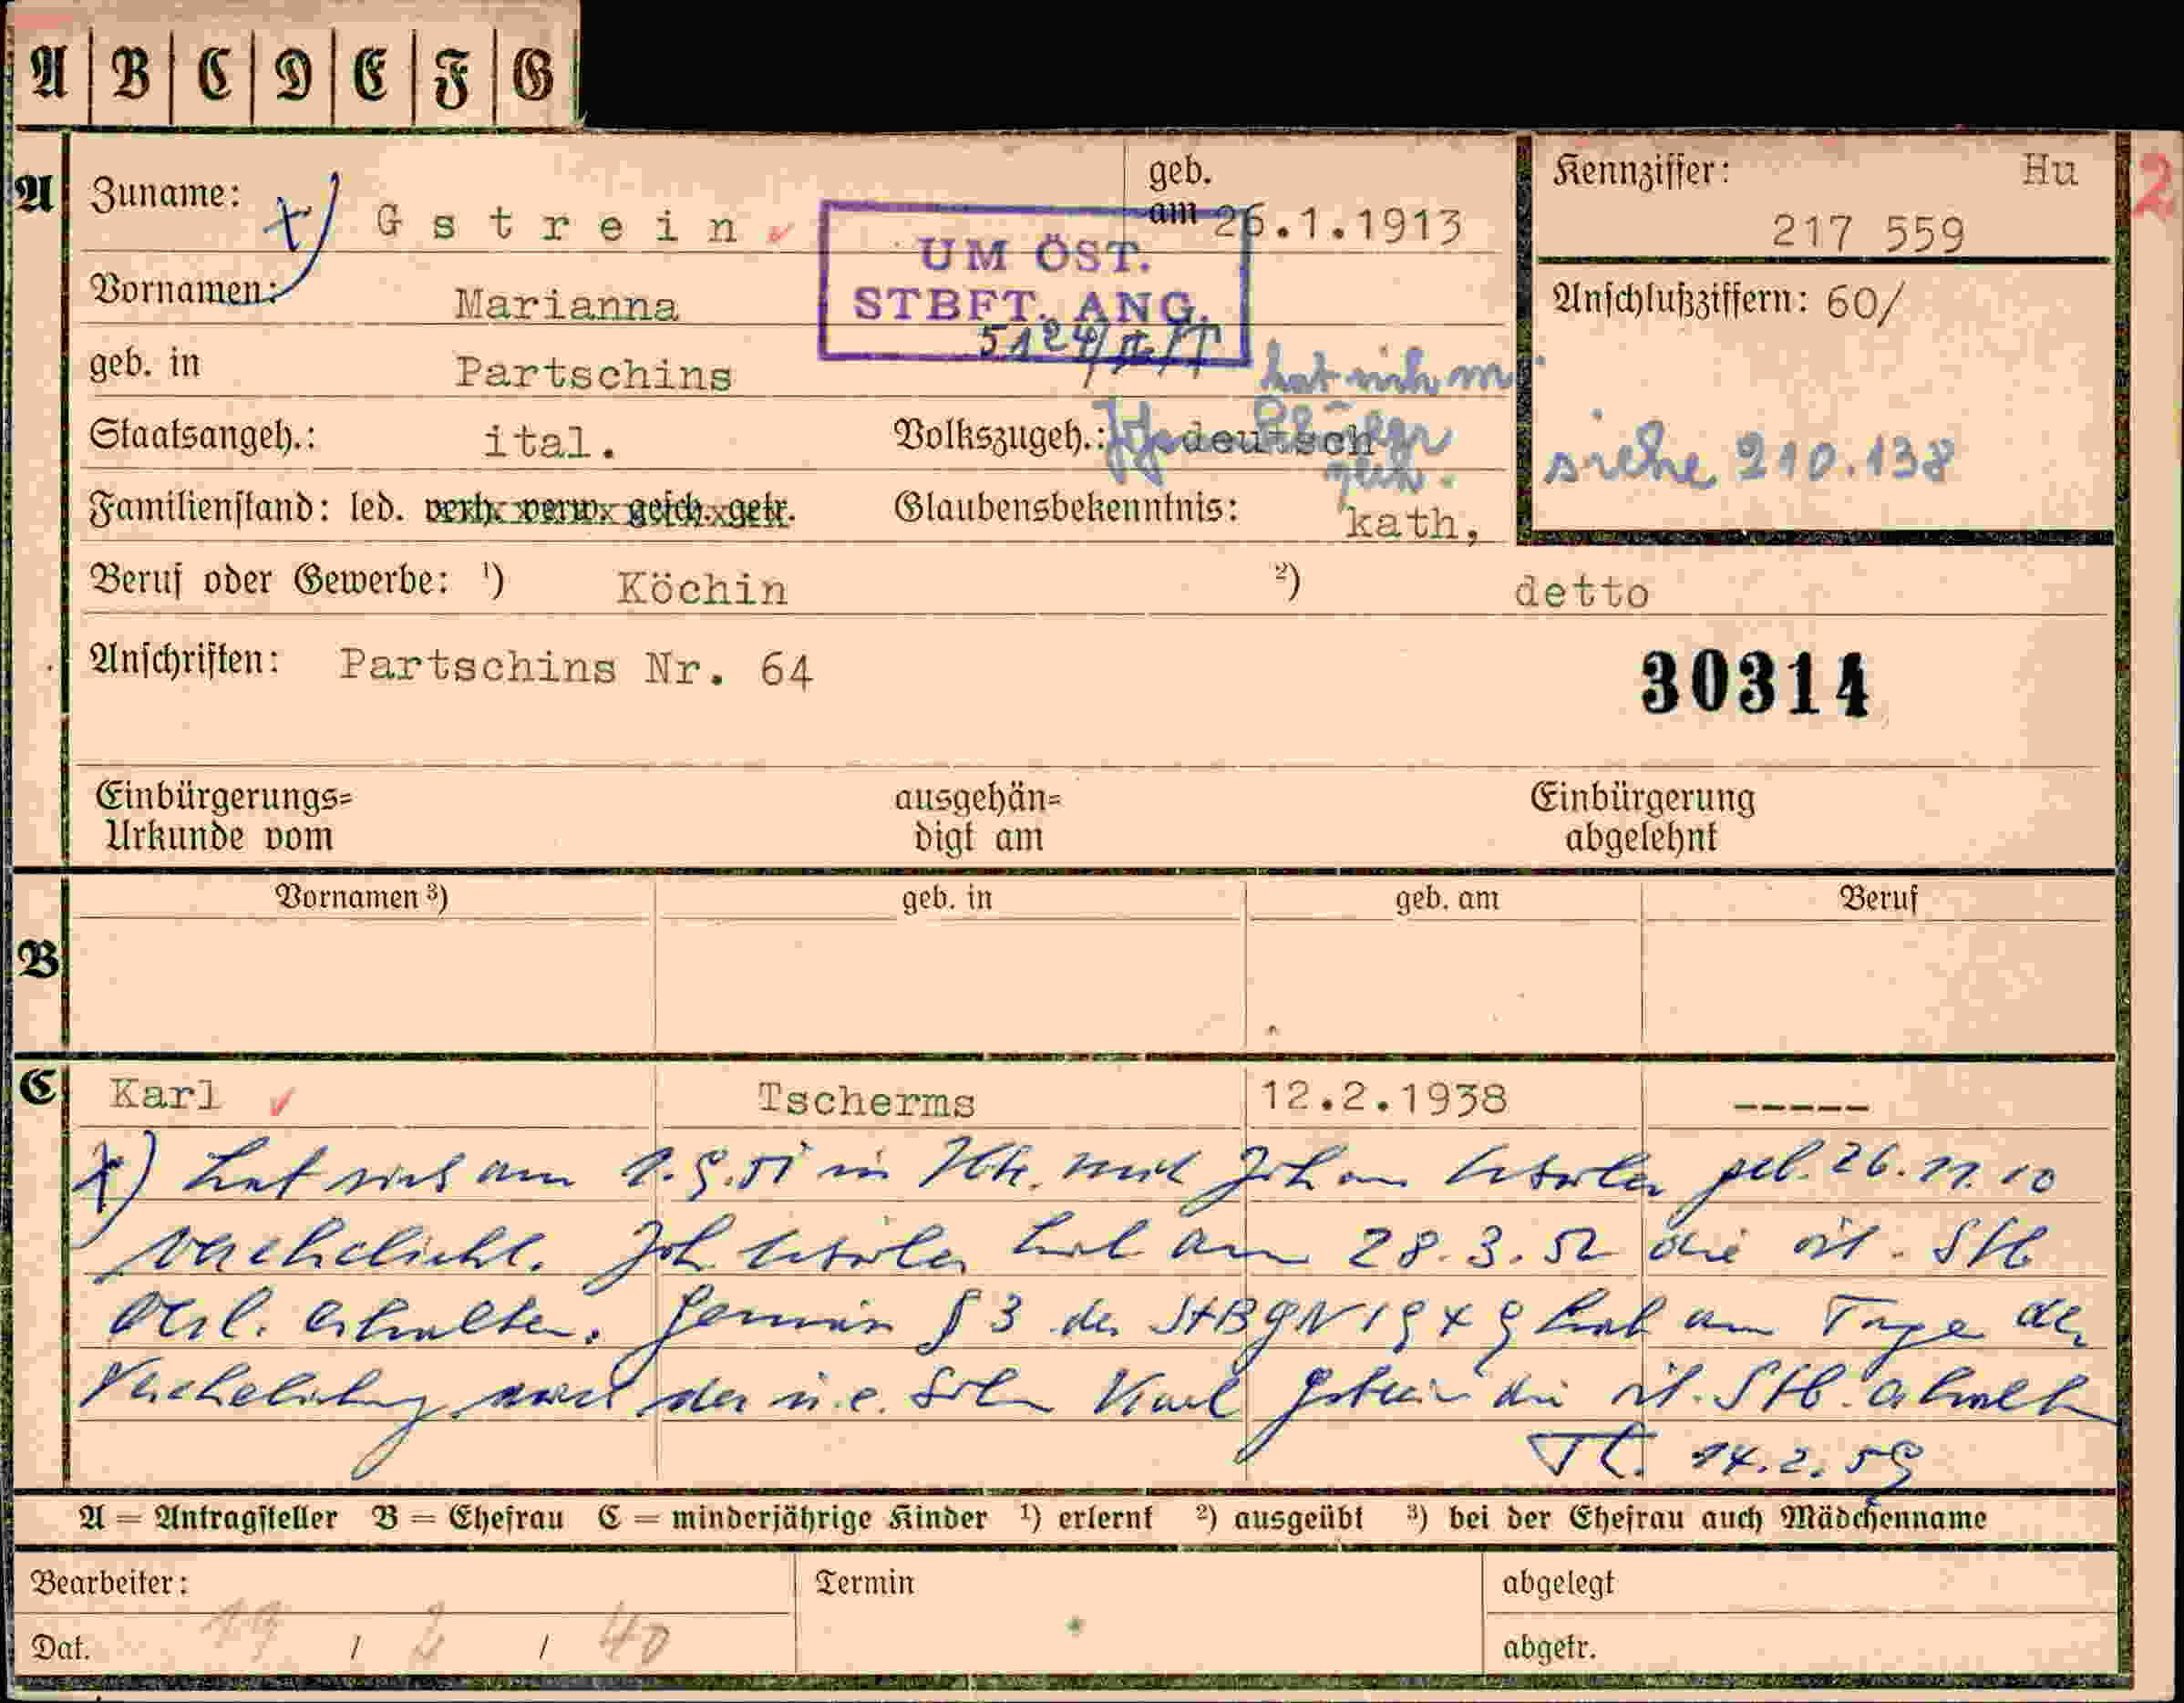 A B C D E F G
A
Zuname: x) Gstrein
geb. am 26.1.1913
Kennziffer: Hu
217 559
2
UM ÖST.
STBFT. ANG.
Vornamen: Marianna
Anschlußziffern: 60/
geb. in Partschins
hat sich
Staatsangeh.: ital.
Volkszugeh.: deutsch
siehe 210.138
Familienstand: led. verh. verw. gesch. getr.
Glaubensbekenntnis: kath,
Beruf oder Gewerbe: ¹) Köchin ²) detto
Anschriften: Partschins Nr. 64
30314
Einbürgerungs= ausgehän= Einbürgerung
Urkunde vom digt am abgelehnt
Vornamen ³) geb. in geb. am Beruf
B
C
Karl Tscherms 12.2.1938 -----
x) hat sich am in mit Johann geb. 26.11.10
verehelicht. Joh. hat am 28.3.52 die öst. Stb
erhalten. Gemäss § 3 des StBGN 1949 hat am Tage der
Verehelichung auch der u.e. Sohn Karl Gstrein die öst. Stb. erhalten
14.2.59
A = Antragsteller B = Ehefrau C = minderjährige Kinder ¹) erlernt ²) ausgeübt ³) bei der Ehefrau auch Mädchenname
Bearbeiter: Termin abgelegt
Dat. 19 / 2 / 40 abgetr.